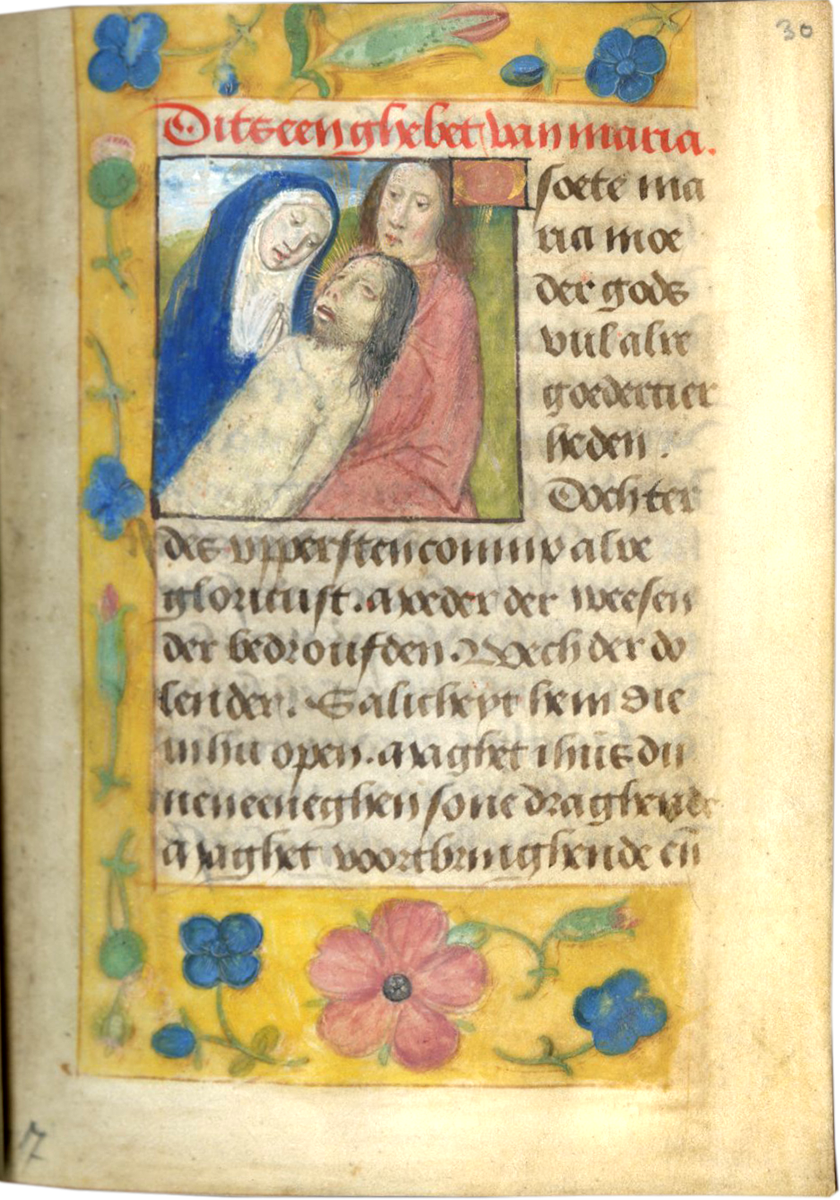 30
Dits een ghebet van maria.
soete ma
ria moe
der gods
vul alre
goedertier
heden.
Dochter
des uppersten conincx alre
gloriuust. Moeder der weesen
der bedroufden. Wech der do
lender. Salicheyt hem die
in hu open. Maghet ihūs dij
nen eeneghen sone draghende
Maghet voortbringhende eñ